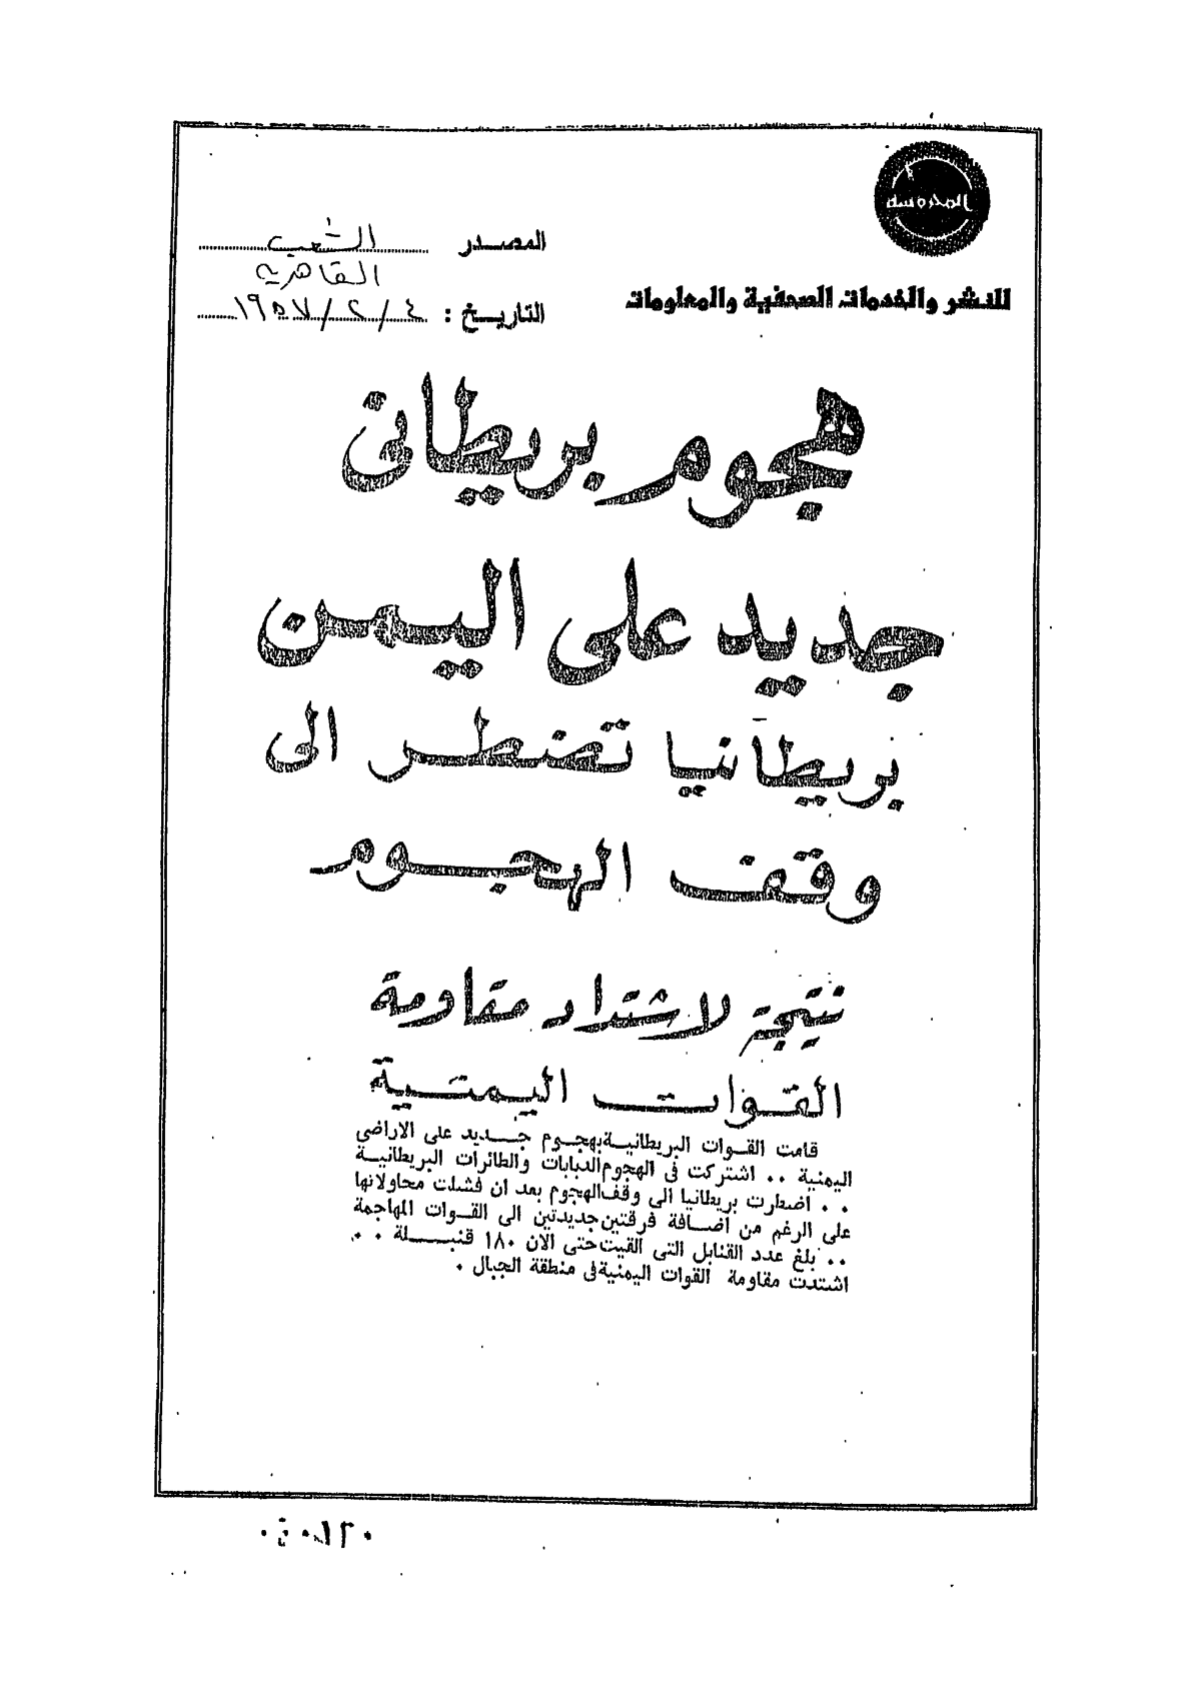 المحروسة
للنشر والخدمات الصحفية والمعلومات
المصدر الشعب
القاهرية
التاريخ : ٤/٢/١٩٥٧
هجوم بريطانى
جديد على اليمن
بريطانيا تضطر الى
وقف الهجوم
نتيجة لاشتداد مقاومة
القوات اليمنية
قامت القوات البريطانية بهجوم جديد على الاراضي
اليمنية .. اشتركت فى الهجوم الدبابات والطائرات البريطانية
.. اضطرت بريطانيا الى وقف الهجوم بعد ان فشلت محاولاتها
على الرغم من اضافة فرقتين جديدتين الى القوات المهاجمة
.. بلغ عدد القنابل التى القيت حتى الان ١٨٠ قنبلة ..
اشتدت مقاومة القوات اليمنية فى منطقة الجبال .